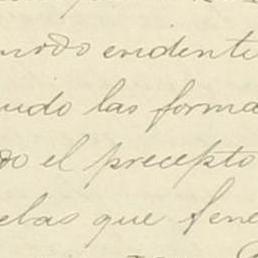 modo evidente
udo las forma
do el precepto
elas que fene